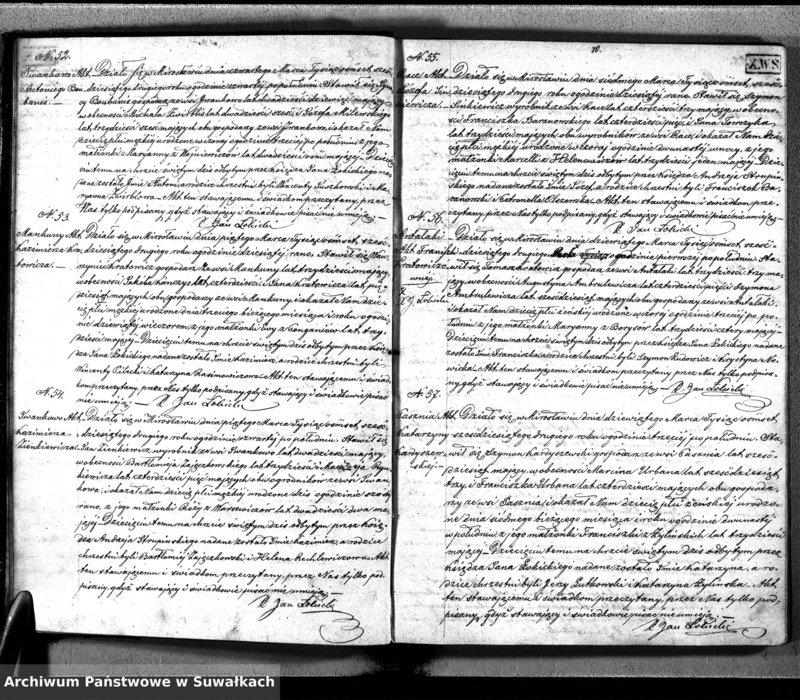 N. 52.
Iwankowo Akt. Działo się w Mirosławiu dnia czwartego Marca Tysiąc ośmset sześć-
Antoniego Bu- dziesiątego drugiego roku o godzinie czwartej po południu. Stawił się
banis. gospodarz ze wsi Iwankowo lat dwadzieścia mający
w obecności Michała lat dwadzieścia sześć i Józefa
lat trzydzieści sześć mających obu gospodarzy ze wsi Iwankowo, i okazał Nam
dziecię płci męzkiej urodzone wczoraj o godzinie trzeciej po południu, z jego
małżonki Maryanny z lat dwadzieścia mającej. Dziecię-
ciu temu na chrzcie świętym dziś odbytym przez Księdza Jana Łobickiego na-
dane zostało Imie Antoni, a rodzice chrzestni byli Wincenty i Ma-
ryanna Akt ten stawającemu i świadkom przeczytany, przez
Nas tylko podpisany, gdyż stawający i świadkowie pisać nie umieją.
X. Jan Łobicki
N. 53.
Mankuny Akt. Działo się w Mirosławiu dnia piątego Marca Tysiąc ośmset, sześć-
Kazimierza Kra- dziesiątego drugiego roku o godzinie rano. Stawił się Wa-
towicza. Kratowicz gospodarz ze wsi Mankuny lat trzydzieści mający,
w obecności Jakóba lat czterdzieści i Jana Kratowicza, lat pięć-
dziesiąt mających obu gospodarzy ze wsi Mankuny i okazał Nam dzie-
cię płci męzkiej urodzone dnia trzeciego bieżącego miesiąca i roku o godzi-
nie dziewiątej wieczorem, z jego małżonki Ewy z lat trzy-
dzieści mającej. Dziecięciu temu na chrzcie świętym dziś odbytym przez Księdza
Jana Łobickiego nadane zostało Imie Kazimierz, a rodzice chrzestni byli
Wincenty i Katarzyna Kazimowiczowa. Akt ten stawającemu i świad-
kom przeczytany, przez Nas tylko podpisany, gdyż stawający i świadkowie pisać
nie umieją. X. Jan Łobicki
N. 54.
Iwankowo Akt. Działo się w Mirosławiu dnia piątego Marca Tysiąc ośmset, sześć-
Kazimierza dziesiątego drugiego roku o godzinie czwartej po południu. Stawił się
Zienkiewicza. Jan Zienkiewicz, wyrobnik ze wsi Iwankowo lat dwadzieścia mający
w obecności Bartłomieja Zajączkowskiego lat trzydzieści i Macieja
kiewicza lat czterdzieści pięć mających obu ogrodników ze wsi Iwan-
kowa, i okazał Nam dziecię płci męzkiej urodzone dziś o godzinie szóstej
rano, z jego małżonki Róży z lat dwadzieścia dwa ma-
jącej. Dziecięciu temu na chrzcie świętym dziś odbytym przez Księ-
dza Andrzeja Strupińskiego nadane zostało Imie Kazimierz, a rodzice
chrzestni byli Bartłomiej Zajączkowski i Helena Akt
ten stawającemu i świadkom przeczytany, przez Nas tylko pod-
pisany, gdyż stawający i świadkowie pisać nie umieją.
X. Jan Łobicki
10.
XWS
N. 55.
Akt. Działo się w Mirosławiu dnia siódmego Marca Tysiąc ośmset, sześć-
Józefa Sin- dziesiątego drugiego roku o godzinie dziesiątej rano. Stawił się Szymon
kiewicza. Sinkiewicz wyrobnik ze wsi lat czterdzieści trzy mający w obecno-
ści Franciszka Baranowskiego lat czterdzieści pięć i Jana
lat trzydzieści mających, obu wyrobników ze wsi i okazał Nam dzie-
cię płci męzkiej, urodzone wczoraj o godzinie dwunastej w nocy, z jego
małżonki Marcelli z lat trzydzieści jeden mającej. Dzie-
cięciu temu na chrzcie świętym dziś odbytym przez Księdza Andrzeja Strupiń-
skiego nadane zostało Imie Józef, a rodzice chrzestni byli Franciszek Ba-
ranowski i Petronella Akt ten stawającemu i świadkom prze-
czytany, przez Nas tylko podpisany, gdyż stawający i świadkowie pisać nie umieją.
X. Jan Łobicki
N. 56.
Antalaki Działo się w Mirosławiu dnia dziewiątego Marca Tysiąc ośmset, sześć-
Akt. Franciszki dziesiątego drugiego roku o godzinie pierwszej po południu. Sta-
Kratowiczo- wił się Tomasz Kratowicz gospodarz ze wsi Antalaki lat trzydzieści trzy ma-
wnej jący, w obecności Augustyna Ambrulewicza lat czterdzieści pięć i Szymona
X. J. Łobicki Ambrulewicza, lat sześćdziesiąt mających obu gospodarzy ze wsi Antalaki,
i okazał Nam dziecię płci żeńskiej urodzone wczoraj o godzinie trzeciej po po-
łudniu z jego małżonki Maryanny z Borysów lat trzydzieści cztery mającej.
Dziecięciu temu na chrzcie świętym dziś odbytym przez Księdza Jana Łobickiego nadane
zostało Imie Franciszka, a rodzice chrzestni byli Szymon i Krystyna No-
wicka. Akt ten stawającemu i świadkom przeczytany, przez Nas tylko podpisa-
ny, gdyż stawający i świadkowie pisać nie umieją. X. Jan Łobicki
N. 57.
Pasznia Akt. Działo się w Mirosławiu dnia dziewiątego Marca Tysiąc ośmset
Katarzyny sześćdziesiątego drugiego roku o godzinie trzeciej po południu. Sta-
Kardyszew- wił się Szymon Kardyszewski gospodarz ze wsi Pasznia lat sześć-
skiej. dziesiąt mający, w obecności Marcina Urbana lat sześćdziesiąt
trzy i Franciszka Urbana lat czterdzieści mających, obu gospoda-
rzy ze wsi Pasznia, i okazał Nam dziecię płci żeńskiej urodzo-
ne dnia siódmego bieżącego miesiąca i roku o godzinie dwunastej
w południe, z jego małżonki Franciszki z Żylińskich lat trzydzieści
mającej. Dziecięciu temu na chrzcie świętym dziś odbytym przez
Księdza Jana Łobickiego nadane zostało Imie Katarzyna, a ro-
dzice chrzestni byli Jerzy Rutkowski i Katarzyna Żylińska. Akt
ten stawającemu i świadkom przeczytany, przez Nas tylko pod-
pisany, gdyż stawający i świadkowie pisać nie umieją.
X. Jan Łobicki
Archiwum Państwowe w Suwałkach